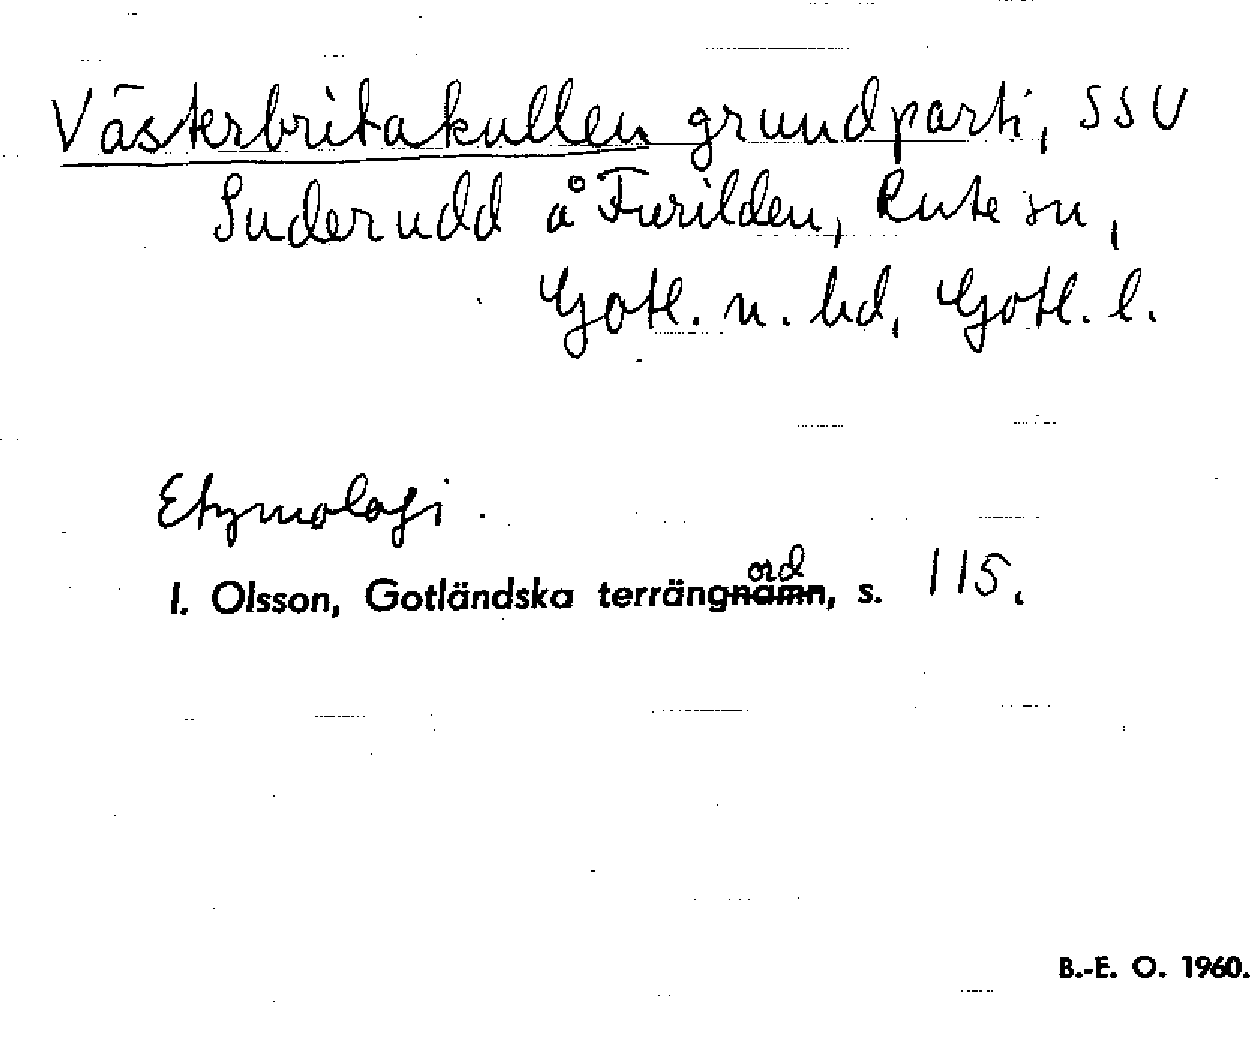 Västerbritakullen grundparti, SSV
Suderudd å Furilden, Rute sn,
Gotl. n. hd, Gotl. l.
Etymologi.
I. Olsson, Gotländska terrängord, s. 115.
B.-E. O. 1960.